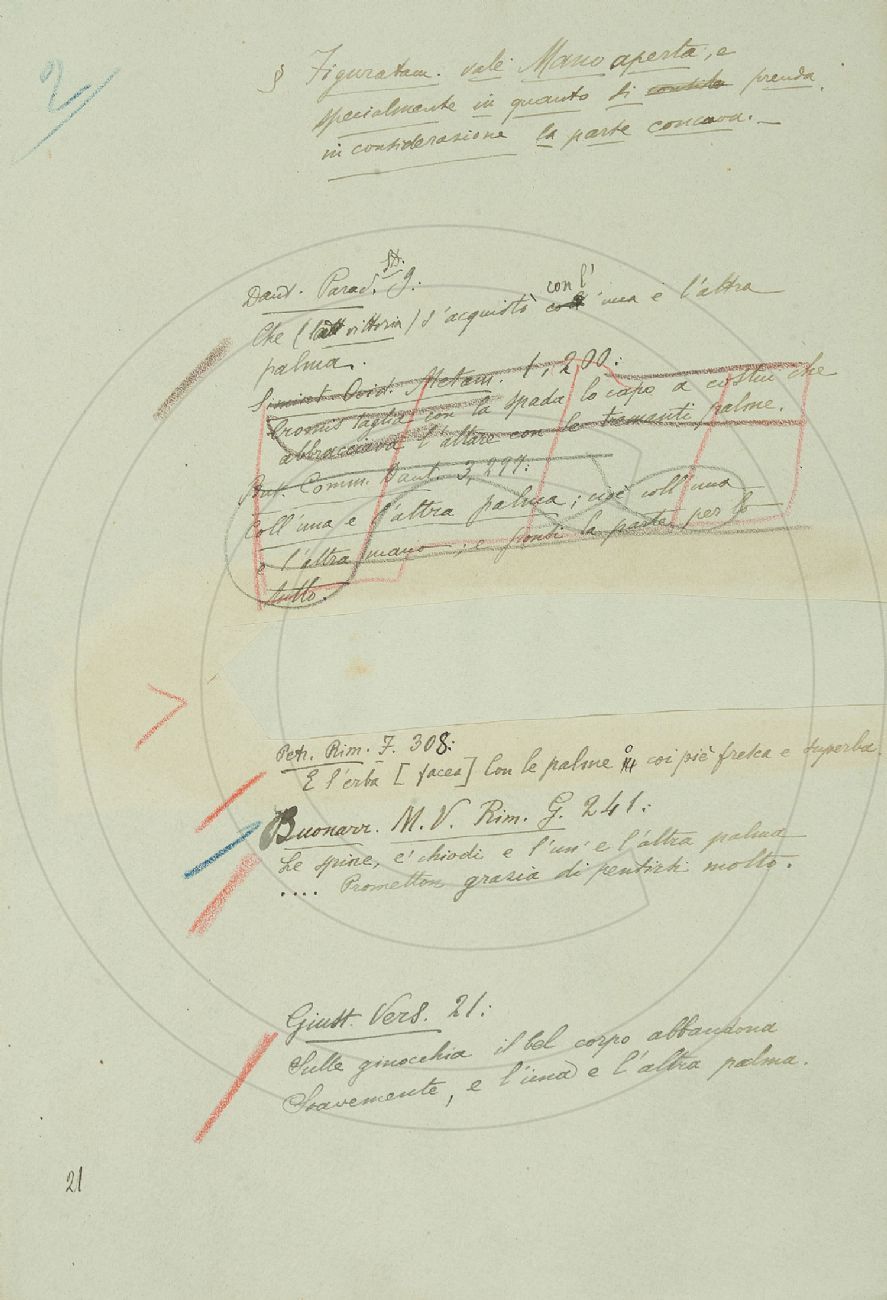 2
§ Figuratam. vale Mano aperta, e
specialmente in quanto si prenda
in considerazione la parte concava. —
Dant. Parad. 9:
Che (l'alt vittoria) s'acquistò con l'una e l'altra
palma.
Simint. Ovid. Metam. 1, 200:
Cromis taglia con la spada lo capo a costui che
abbracciava l'altare con le tremanti palme.
But. Comm. Dant. 3, 299:
Coll'una e l'altra palma; cioè coll'una
e l'altra mano; e ponsi la parte per lo
tutto.
Petr. Rim. F. 308:
E l'erba [facea] Con le palme o coi piè fresca e superba.
Buonarr. M. V. Rim. G. 241:
Le spine, e' chiodi e l'un' e l'altra palma
.... Prometton grazia di pentirsi molto.
Giust. Vers. 21:
Sulle ginocchia il bel corpo abbandona
Soavemente, e l'una e l'altra palma.
21